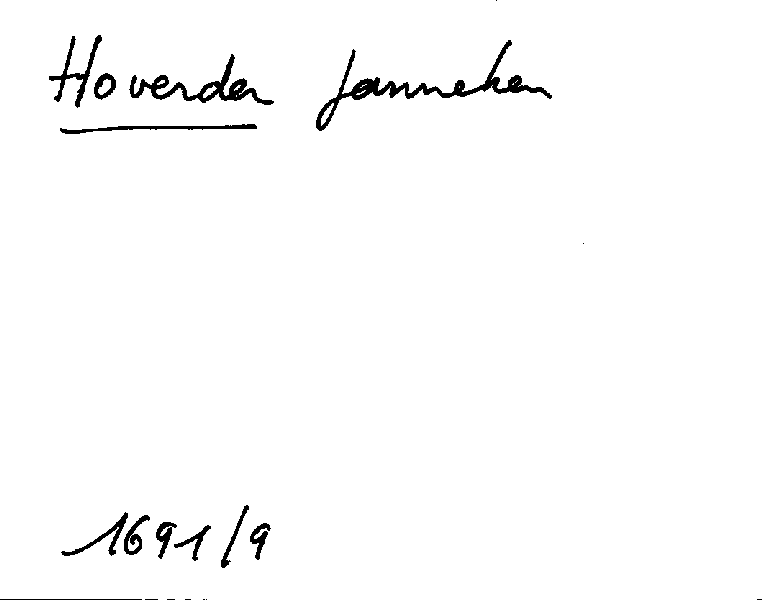 Hoverden Janneken
1691/9